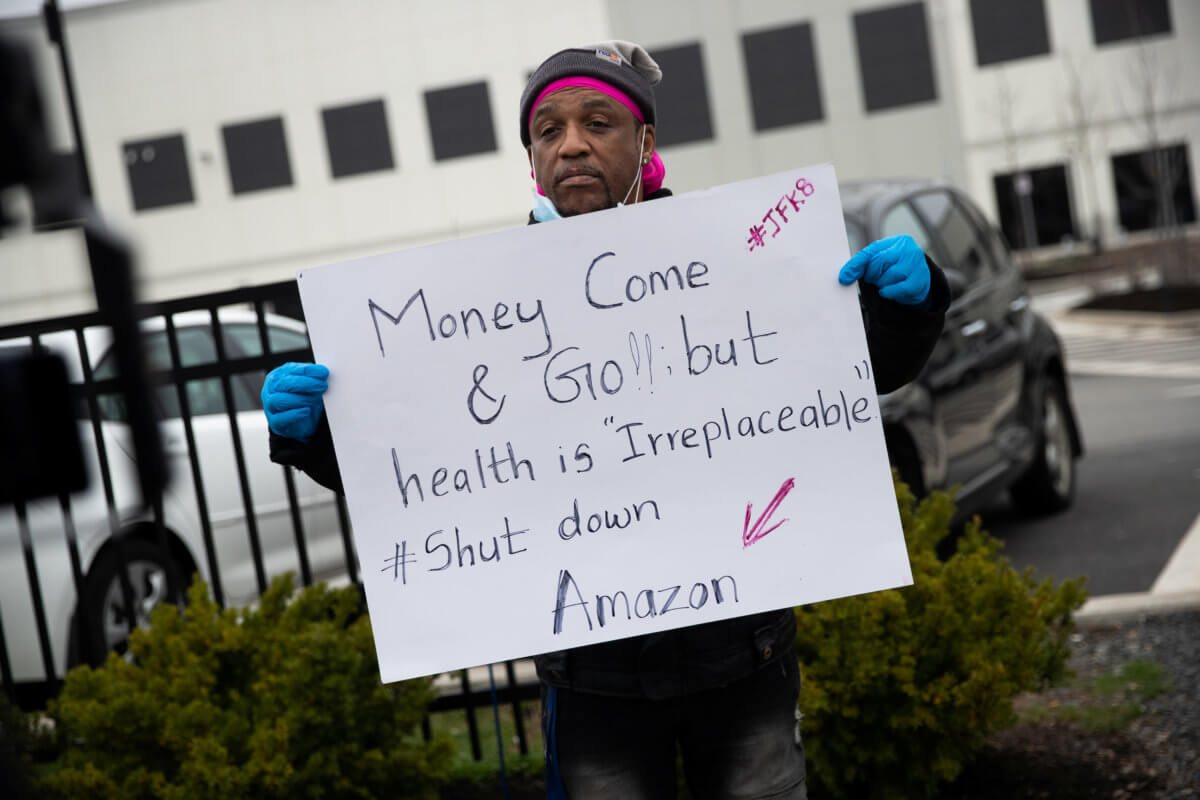 #JFK8
Money Come
& Go!!; but
health is "Irreplaceable."
#Shut down
Amazon